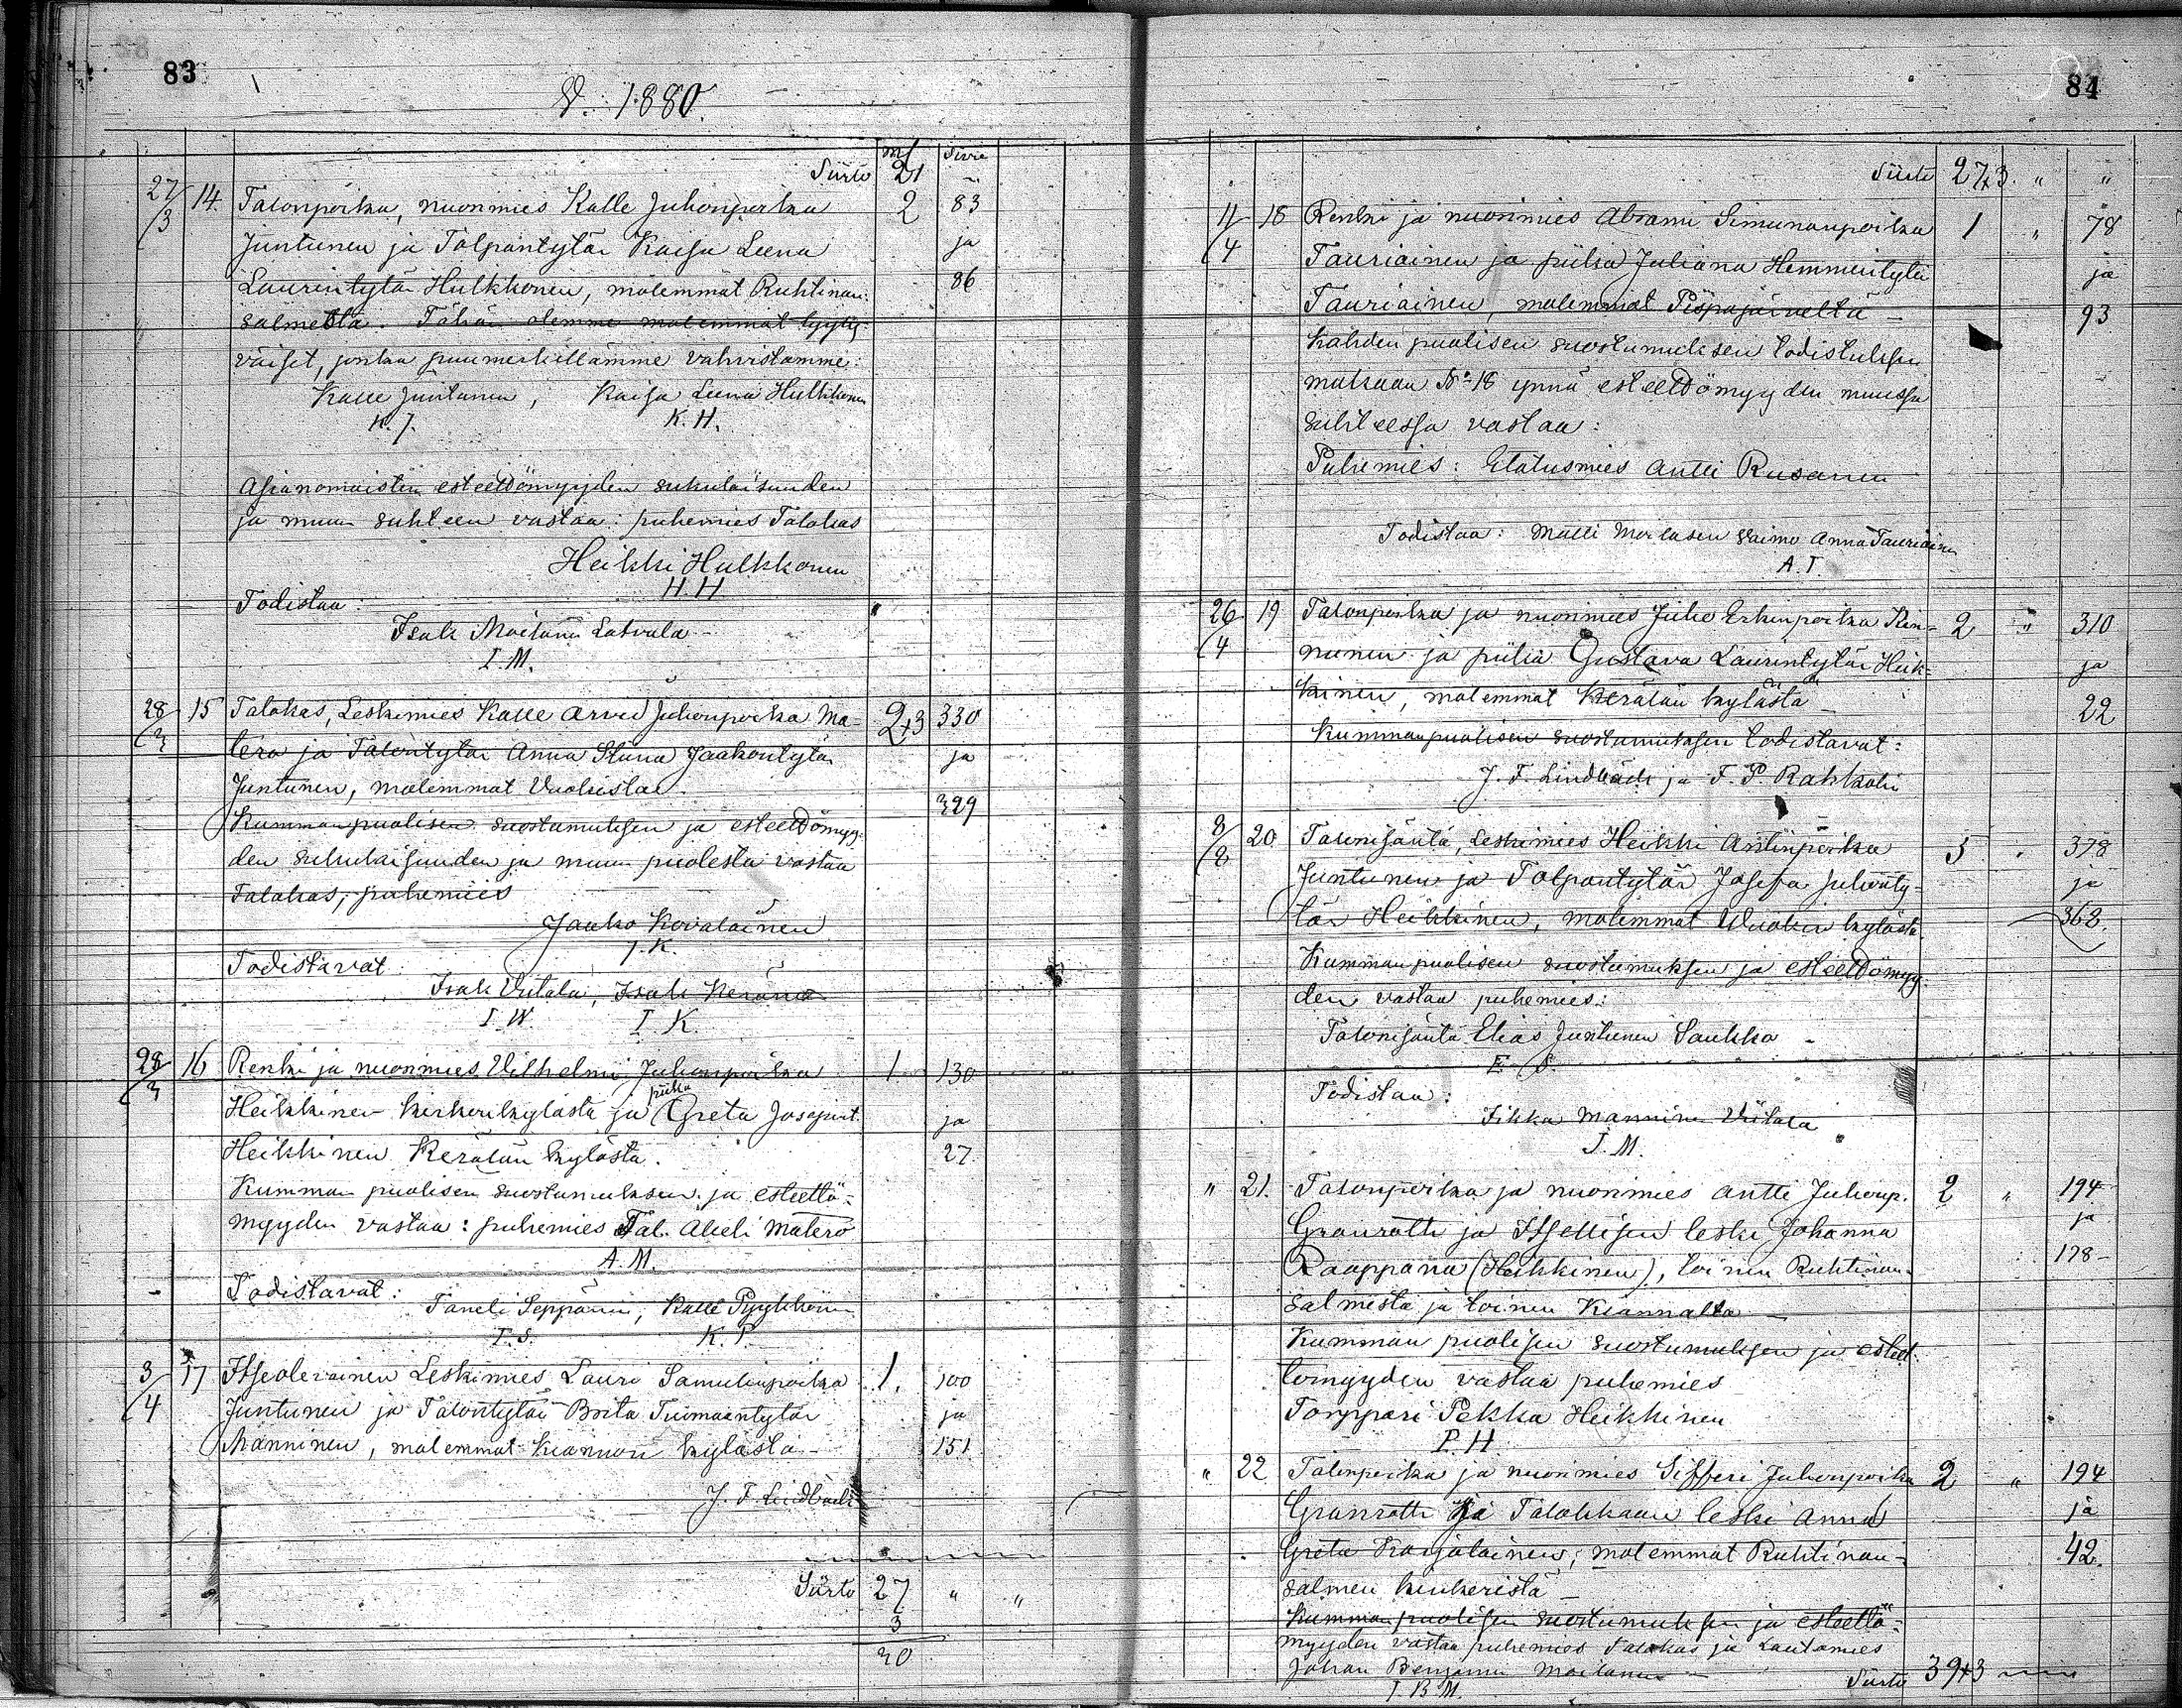 83
V. 1880.
m/ Sivu
Siirto 21
27/3 14. Talonpoika, nuorimies Kalle Juhonpoika 2 83
Juntunen ja Talpontytär Kaisa Leena ja
Laurintytär Hulkkonen, molemmat Ruhtinan: 86
salmelta. Tähän olemme molemmat tyyty-
väiset, jonka puumerkillämme vahvistamme:
Kalle Juntunen, Kaisa Leena Hulkkonen
K. J. K. H.
Asianomaisten esteettömyyden sukulaisuuden
ja muun suhteen vastaa: puhemies Talokas
Heikki Hulkkonen
H. H
Todistaa:
Isak Moilanen Latvala
I. M.
28/3 15 Talokas, Leskimies Kalle Arvid Juhonpoika Ma- 2+3 330
tero ja Talontytär Anna Stiina Jaakontytär ja
Juntunen, molemmat Vuokista. 329
Kumman puolisen suostumuksen ja esteettömyy-
den sukulaisuuden ja muun puolesta vastaa
Talokas, puhemies
Jaako Kovalainen
J. K.
Todistavat:
Isak Viitala, Isak Keränen
I. W. I. K.
28/3 16 Renki ja nuorimies Vilhelmi Juhonpoika 1. 130
piika
Heikkinen Kirkonkylästä ja Greta Josepint. ja
Heikkinen Kerälän kylästä. 27
Kumman puolisen suostumuksen ja esteettö-
myyden vastaa: puhemies Tal. Abeli Matero
A. M.
Todistavat:
Taneli Seppänen, Kalle Pyykkönen
T. S. K. P.
3/4 17 Itsellinen Leskimies Lauri Samulinpoika 1. 100
Juntunen ja Talontytär Brita Tuomaantytär ja
Manninen, molemmat Kiannan kylästä 151
J. F. Lindbäck
Siirto 27 " "
3
30
84
Siirto 27+3 " "
11/4 18 Renki ja nuorimies Abrami Simunanpoika 1 " 78
Tauriainen ja piika Juliana Hemmintytär ja
Tauriainen, molemmat Piispajärveltä 93
Kahden puolisen suostumuksen todistuksen
mukaan No 18 ynnä esteettömyyden muussa
suhteessa vastaa:
Puhemies: Elatusmies Antti Rusanen
Todistaa: Matti Moilasen vaimo Anna Tauriainen
A. T.
26/4 19 Talonpoika ja nuorimies Juho Erkinpoika Kin- 2 " 310
nunen ja piika Gustava Laurintytär Heik- ja
kinen, molemmat Kerälän kylästä 22
Kummanpuolisen suostumuksen todistavat:
J. F. Lindbäck ja F. P. Rahkola
8/8 20 Talonisäntä, Leskimies Heikki Antinpoika 5 . 378
Juntunen ja Talpontytär Josefa Juhonty- ja
tär Heikkinen, molemmat Vuokin kylästä. 368.
Kumman puolisen suostumuksen ja esteettömyy-
den vastaa puhemies:
Talonisäntä Elias Juntunen Saukko
E. S.
Todistaa:
Iikka Manninen Viitala
I. M.
" 21. Talonpoika ja nuorimies Antti Juhonp. 2 " 194
Granrotti ja Itsellisen leski Johanna ja
Raappana (Heikkinen), toinen Ruhtinan- 178
salmesta ja toinen Kiannalta
Kumman puolisen suostumuksen ja esteet-
tömyyden vastaa puhemies
Torppari Pekka Heikkinen
P. H.
" 22 Talonpoika ja nuorimies Sifferi Juhonpoika 2 " 194
Granrotti ja Talokkaan leski Anna ja
Greta Karjalainen, molemmat Ruhtinan- 42.
salmen kinkeristä
Kumman puolisen suostumuksen ja esteettö-
myyden vastaa puhemies Talokas ja Lautamies
Johan Benjamin Moilanen
I B M.
Siirto 39+3